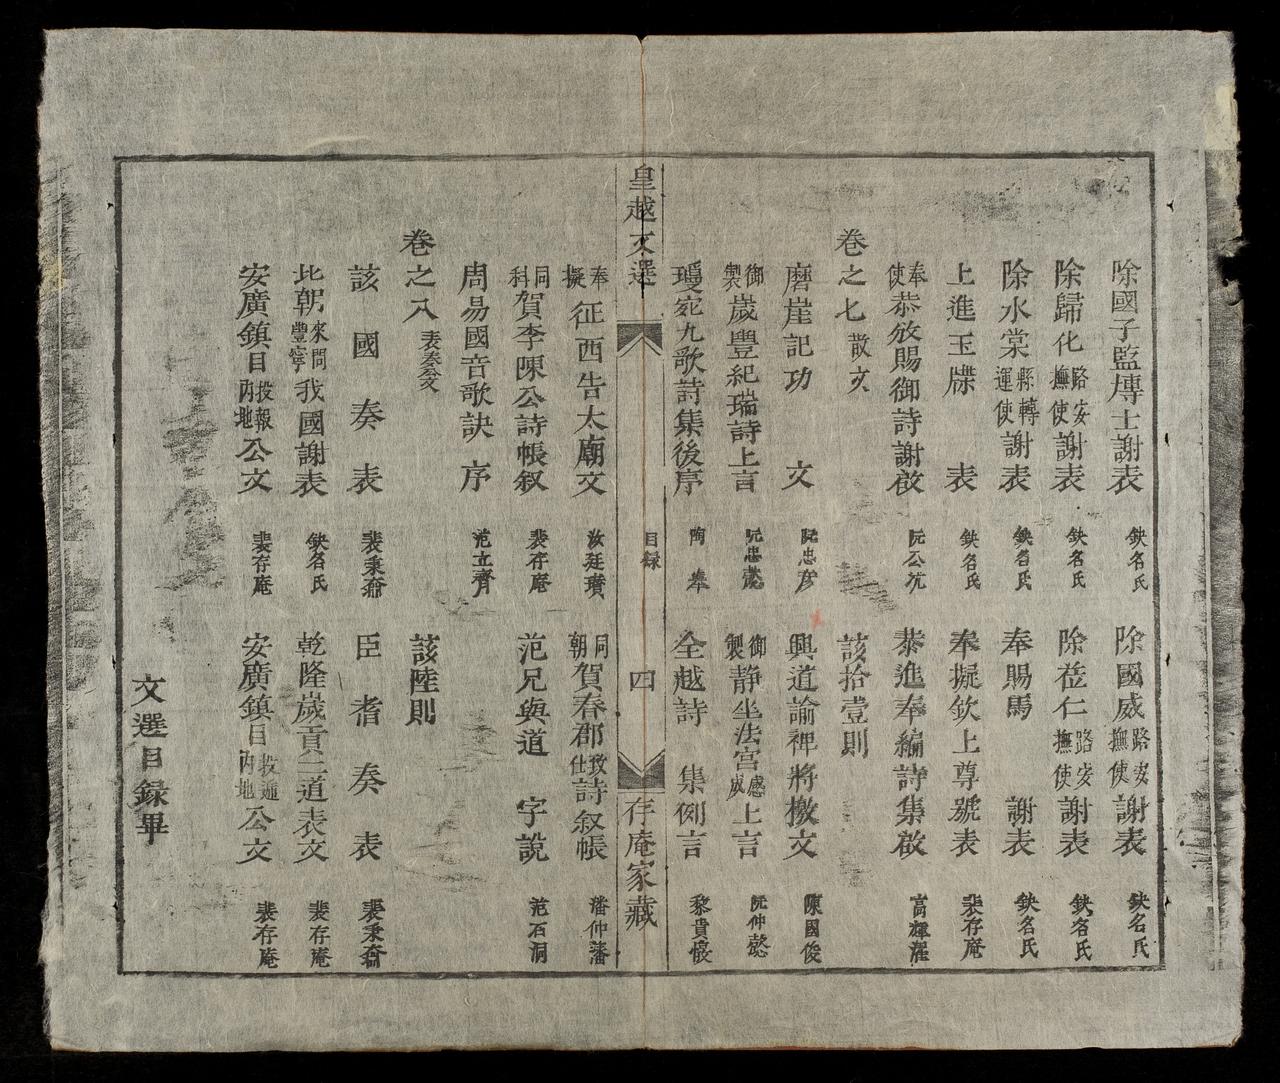 除國子監博士謝表 鈌名氏 除國威路安撫使謝表 鈌名氏
除歸化路安撫使謝表 鈌名氏 除莅仁路安撫使謝表 鈌名氏
除水棠縣轉運使謝表 鈌名氏 奉賜馬謝表 鈌名氏
上進玉牒表 鈌名氏 奉擬欽上尊號表 裴存庵
奉使恭攽賜御詩謝啟 阮公沆 恭進奉編詩集啟 高輝濯
卷之七 散文 該拾壹則
磨崖記功文 阮忠彥 興道諭裨將檄文 陳國俊
御製歲豐紀瑞詩上言 阮忠懿 御製静坐法宫感成上言 阮仲懿
瓊宛九歌詩集後序 陶奉 全越詩集例言 黎貴惇
皇越文選 目録 四 存庵家藏
奉擬征西告太廟文 汝廷瓚 同朝賀春郡致仕詩叙帳 潘仲藩
同科賀李陳公詩帳叙 裴存庵 范兄與道字說 范石洞
周易國音歌訣序 范立齋
卷之八 表奏公文 該陸則
該國奏表 裴秉裔 臣耆奏表 裴秉裔
比朝來問豐寧我國謝表 鈌名氏 乾隆歲貢二道表文 裴存庵
安廣鎮目投報内地公文 裴存庵 安廣鎮目投遞内地公文 裴存庵
文選目録畢